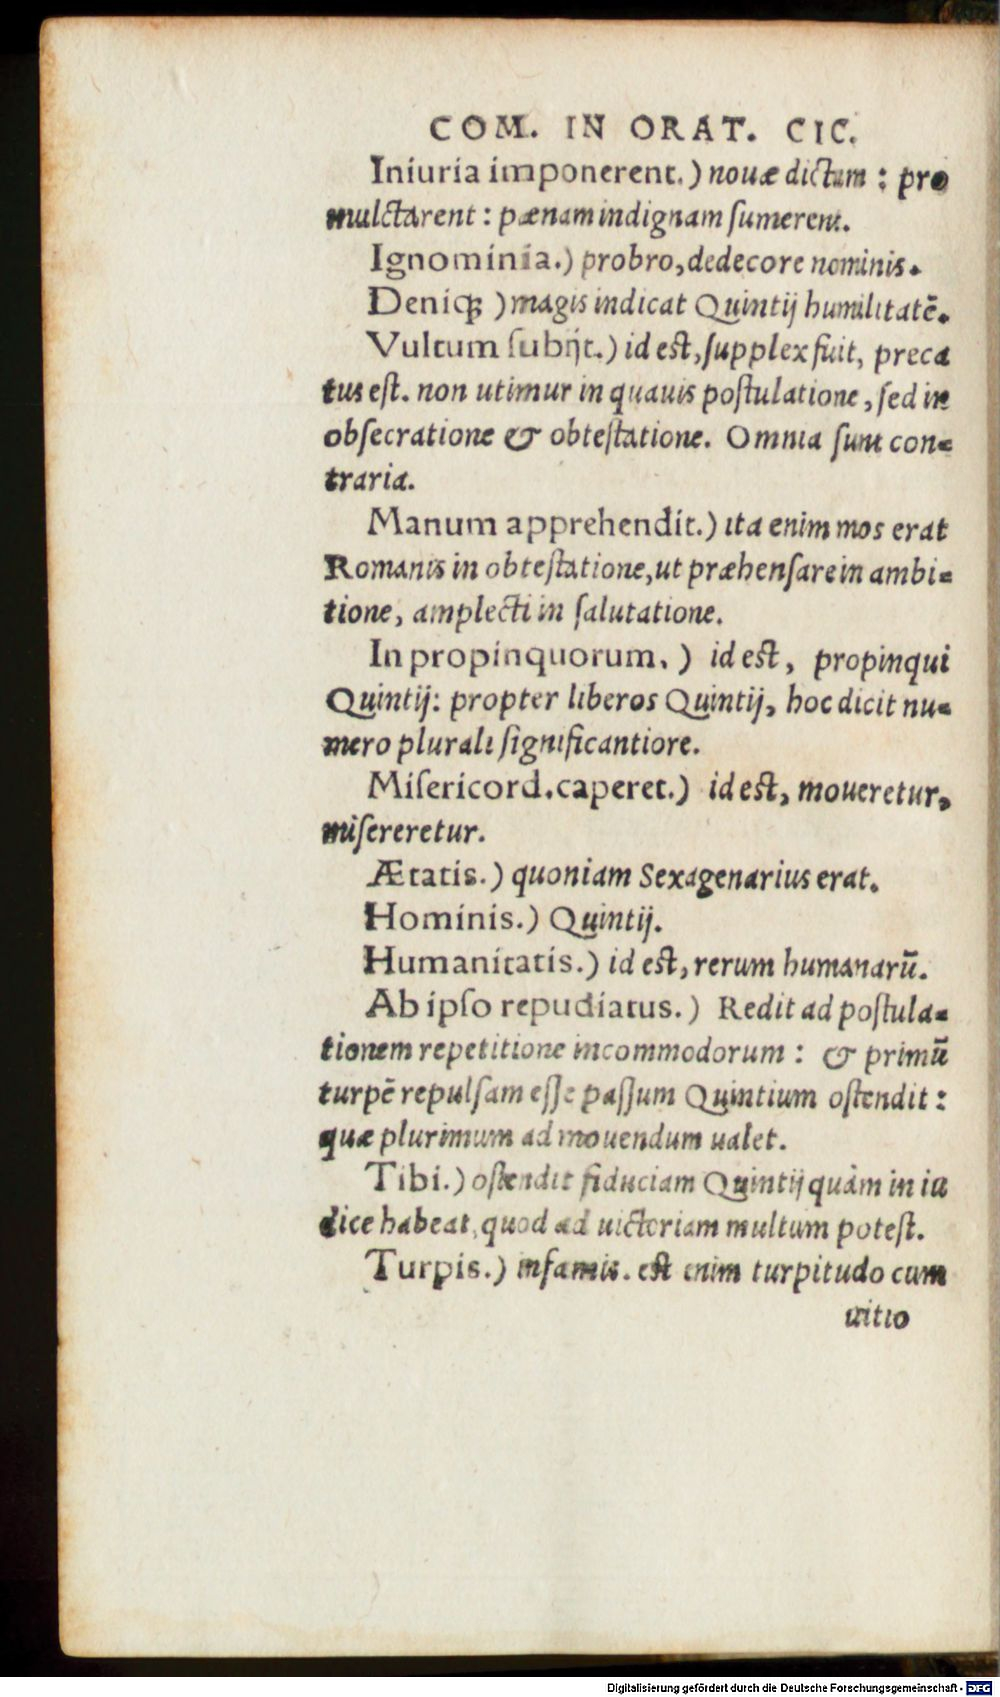 COM. IN ORAT. CIC.
Iniuria imponerent.) nouæ dictum : pro
mulctarent : pœnam indignam sumerent.
Ignominia.) probro, dedecore nominis.
Deniqꝫ ) magis indicat Quintij humilitatẽ.
Vultum subijt.) id est, supplex fuit, preca
tus est. non utimur in quauis postulatione, sed in
obsecratione & obtestatione. Omnia sunt con=
traria.
Manum apprehendit.) ita enim mos erat
Romanis in obtestatione, ut præhensare in ambi=
tione, amplecti in salutatione.
In propinquorum. ) id est, propinqui
Quintij: propter liberos Quintij, hoc dicit nu=
mero plurali significantiore.
Misericord. caperet.) id est, moueretur,
misereretur.
Ætatis.) quoniam Sexagenarius erat.
Hominis.) Quintij.
Humanitatis.) id est, rerum humanarũ.
Ab ipso repudiatus.) Redit ad postula=
tionem repetitione incommodorum : & primũ
turpẽ repulsam esse passum Quintium ostendit :
quæ plurimum ad mouendum ualet.
Tibi.) ostendit fiduciam Quintij quàm in iu
dice habeat, quod ad uictoriam multum potest.
Turpis.) infamis. est enim turpitudo cum
uitio
Digitalisierung gefördert durch die Deutsche Forschungsgemeinschaft - DFG